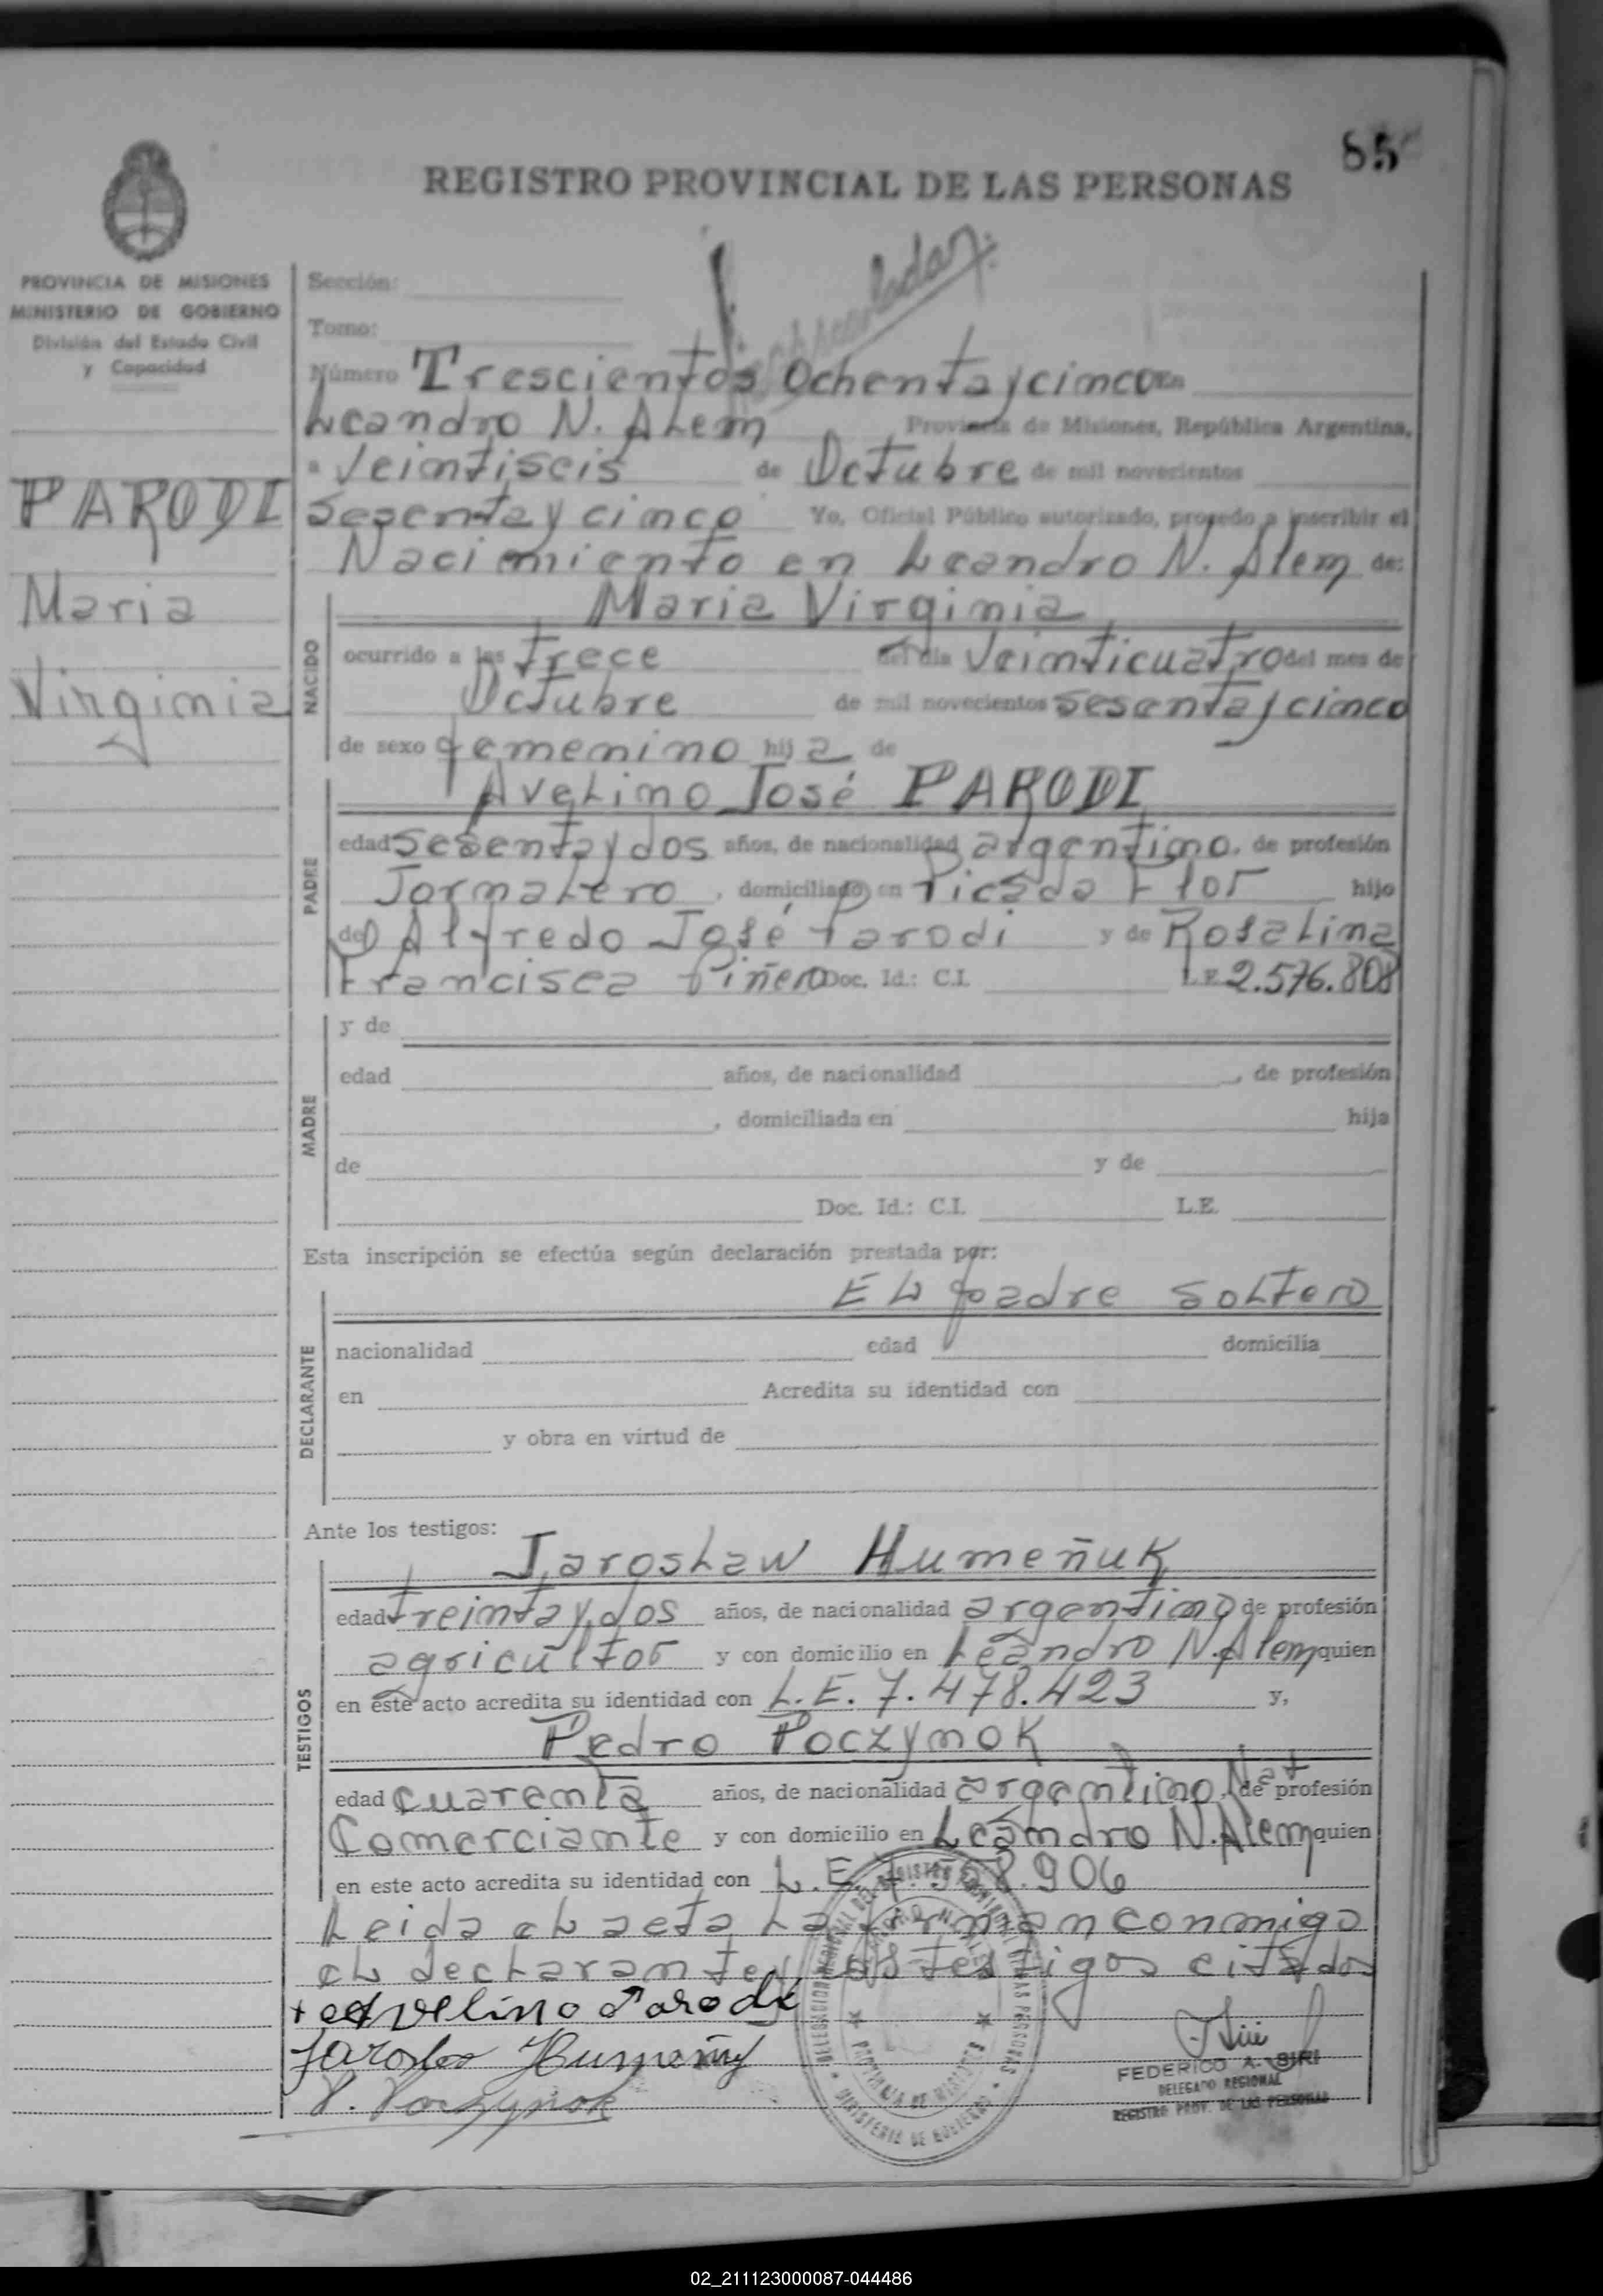 85
REGISTRO PROVINCIAL DE LAS PERSONAS
PROVINCIA DE MISIONES
MINISTERIO DE GOBIERNO
División del Estado Civil
y Capacidad
PARODI
Maria
Virginia
Sección:
Tomo:
Número Trescientos Ochenta y cinco En
Leandro N. Alem Provincia de Misiones, República Argentina,
a Veintiseis de Octubre de mil novecientos
Sesenta y cinco Yo, Oficial Público autorizado, procedo a inscribir el
Nacimiento en Leandro N. Alem de:
NACIDO
Maria Virginia
ocurrido a las trece del día Veinticuatro del mes de
Octubre de mil novecientos sesenta y cinco
de sexo femenino hija de
PADRE
Avelino José PARODI
edad sesenta y dos años, de nacionalidad argentino, de profesión
Jornalero, domiciliado en Picada Flor hijo
de D Alfredo José Parodi y de Rosalina
Francisca Piñero Doc. Id.: C.I. L.E. 2.576.808
MADRE
y de
edad años, de nacionalidad , de profesión
, domiciliada en hija
de y de
Doc. Id.: C.I. L.E.
Esta inscripción se efectúa según declaración prestada por:
DECLARANTE
El padre soltero
nacionalidad edad domicilia
en Acredita su identidad con
y obra en virtud de
Ante los testigos:
TESTIGOS
Jaroslaw Humeñuk
edad treinta y dos años, de nacionalidad argentino de profesión
agricultor y con domicilio en Leandro N. Alem quien
en este acto acredita su identidad con L.E. 7.478.423 y,
Pedro Poczynok
edad cuarenta años, de nacionalidad argentino, Nat de profesión
Comerciante y con domicilio en Leandro N. Alem quien
en este acto acredita su identidad con L.E. 8.906
Leida el acta la firman conmigo
el declarante y los testigos citados
+ Avelino Parodi
Jaroslao Humeñuk
P. Poczynok
FEDERICO A. SIRI
DELEGADO REGIONAL
REGISTRO PROV. DE LAS PERSONAS
PROVINCIA DE MISIONES
MINISTERIO DE GOBIERNO
02_211123000087-044486